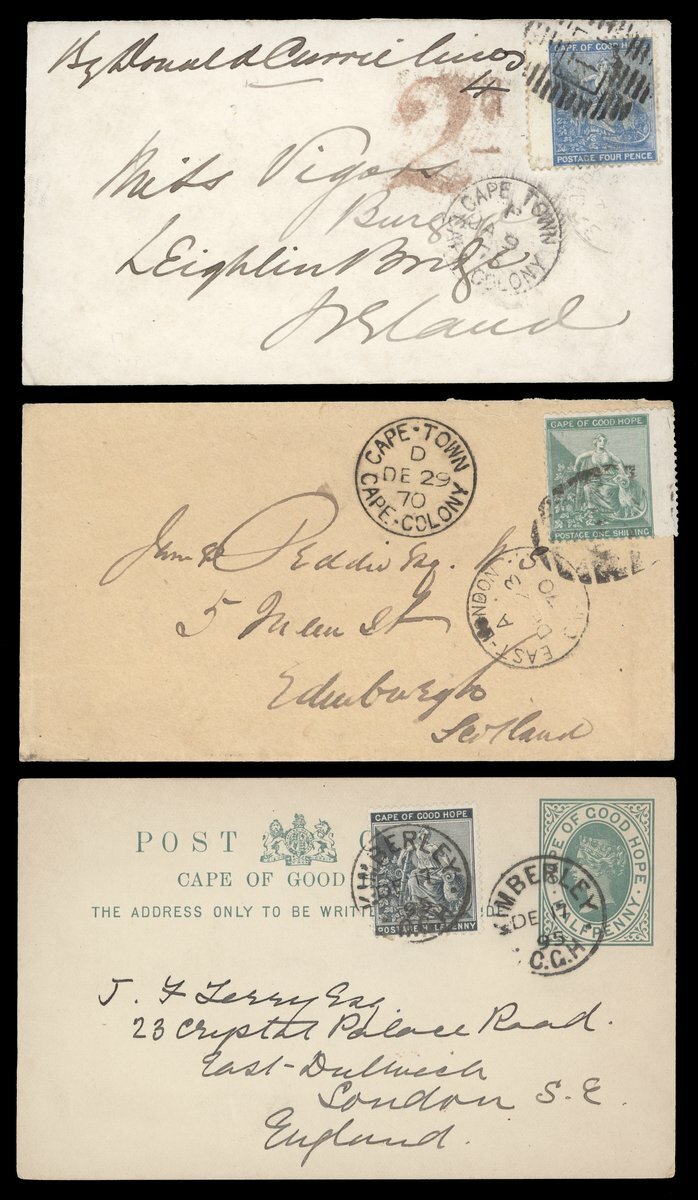 By Donald Currie Lines
4
2d
CAPE OF GOOD HOPE
POSTAGE FOUR PENCE
Miss Vigors
Burgage
Leighlin Bridge
Ireland
CAPE TOWN
JA 9
76
COLONY
CAPE·TOWN
D
DE 29
70
CAPE·COLONY
CAPE OF GOOD HOPE
POSTAGE ONE SHILLING
EAST-LONDON
A
DE 23
70
James Peddie Esq. W.S
5
St
Edinburgh
Scotland
POST
CAPE OF GOOD
THE ADDRESS ONLY TO BE WRITTEN
CAPE OF GOOD HOPE
POSTAGE HALFPENNY
CAPE OF GOOD HOPE
HALFPENNY
KIMBERLEY
KIMBERLEY
DE
95
C.G.H
J. F Terry Esq
23 Crystal Palace Road.
East-Dulwich
London S.E.
England.